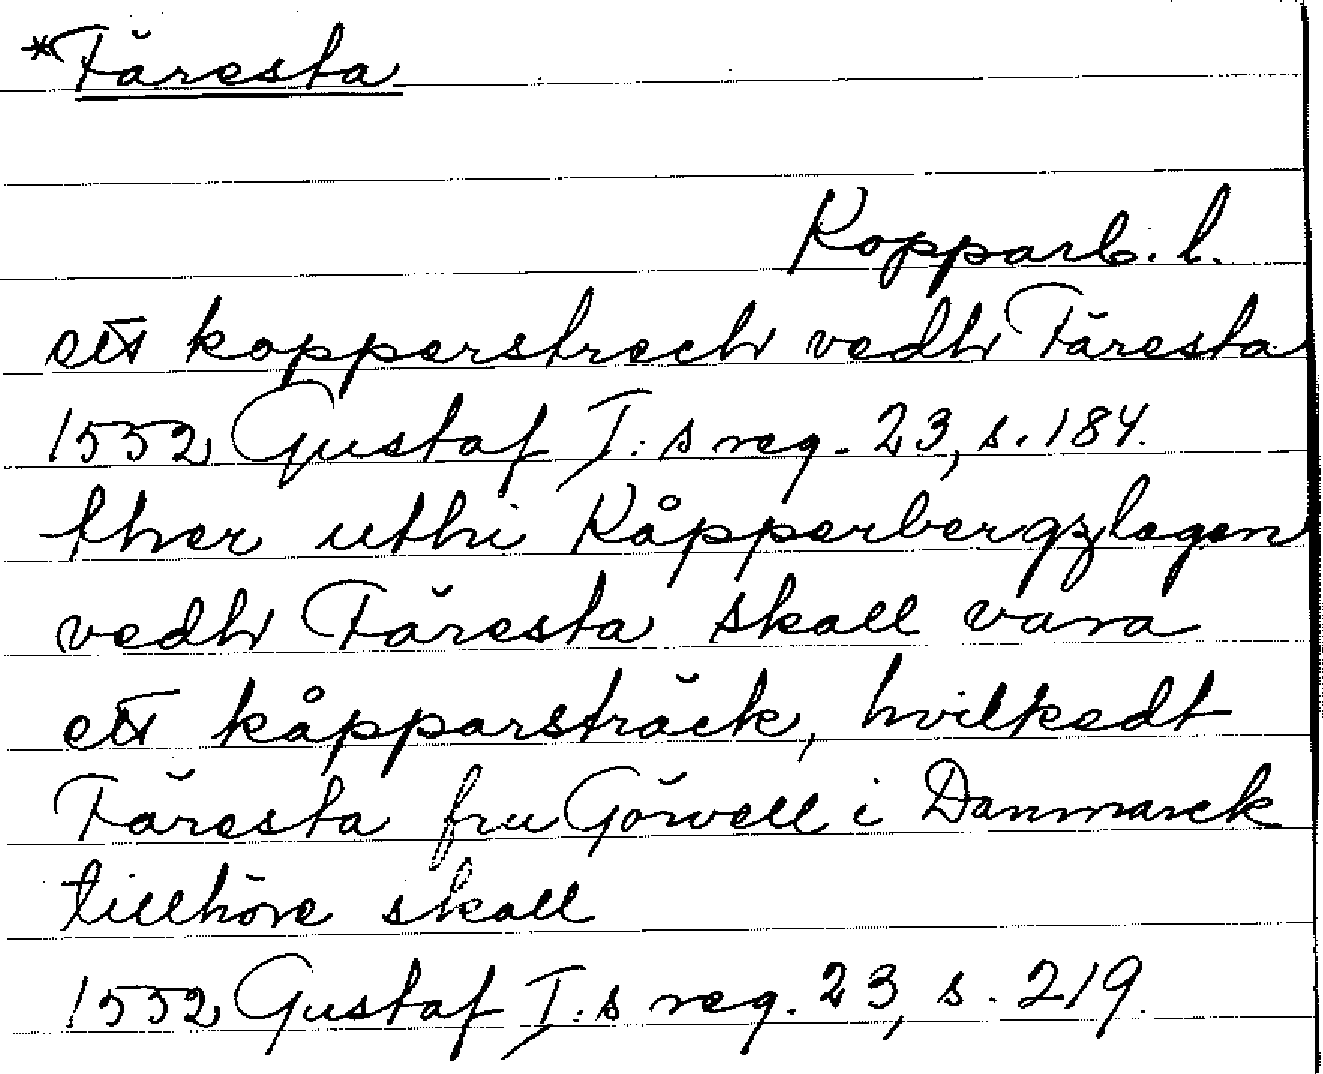 *Färesta
Kopparb. l.
ett kopperstrech vedh Färesta
1552 Gustaf I:s reg. 23, s. 184.
ther uthi Kåpperbergzlagen
vedh Färesta skall vara
ett kåpparsträck, hvilkedt
Färesta fru Görvell i Danmarck
tillhöre skall
1552 Gustaf I:s reg. 23, s. 219.